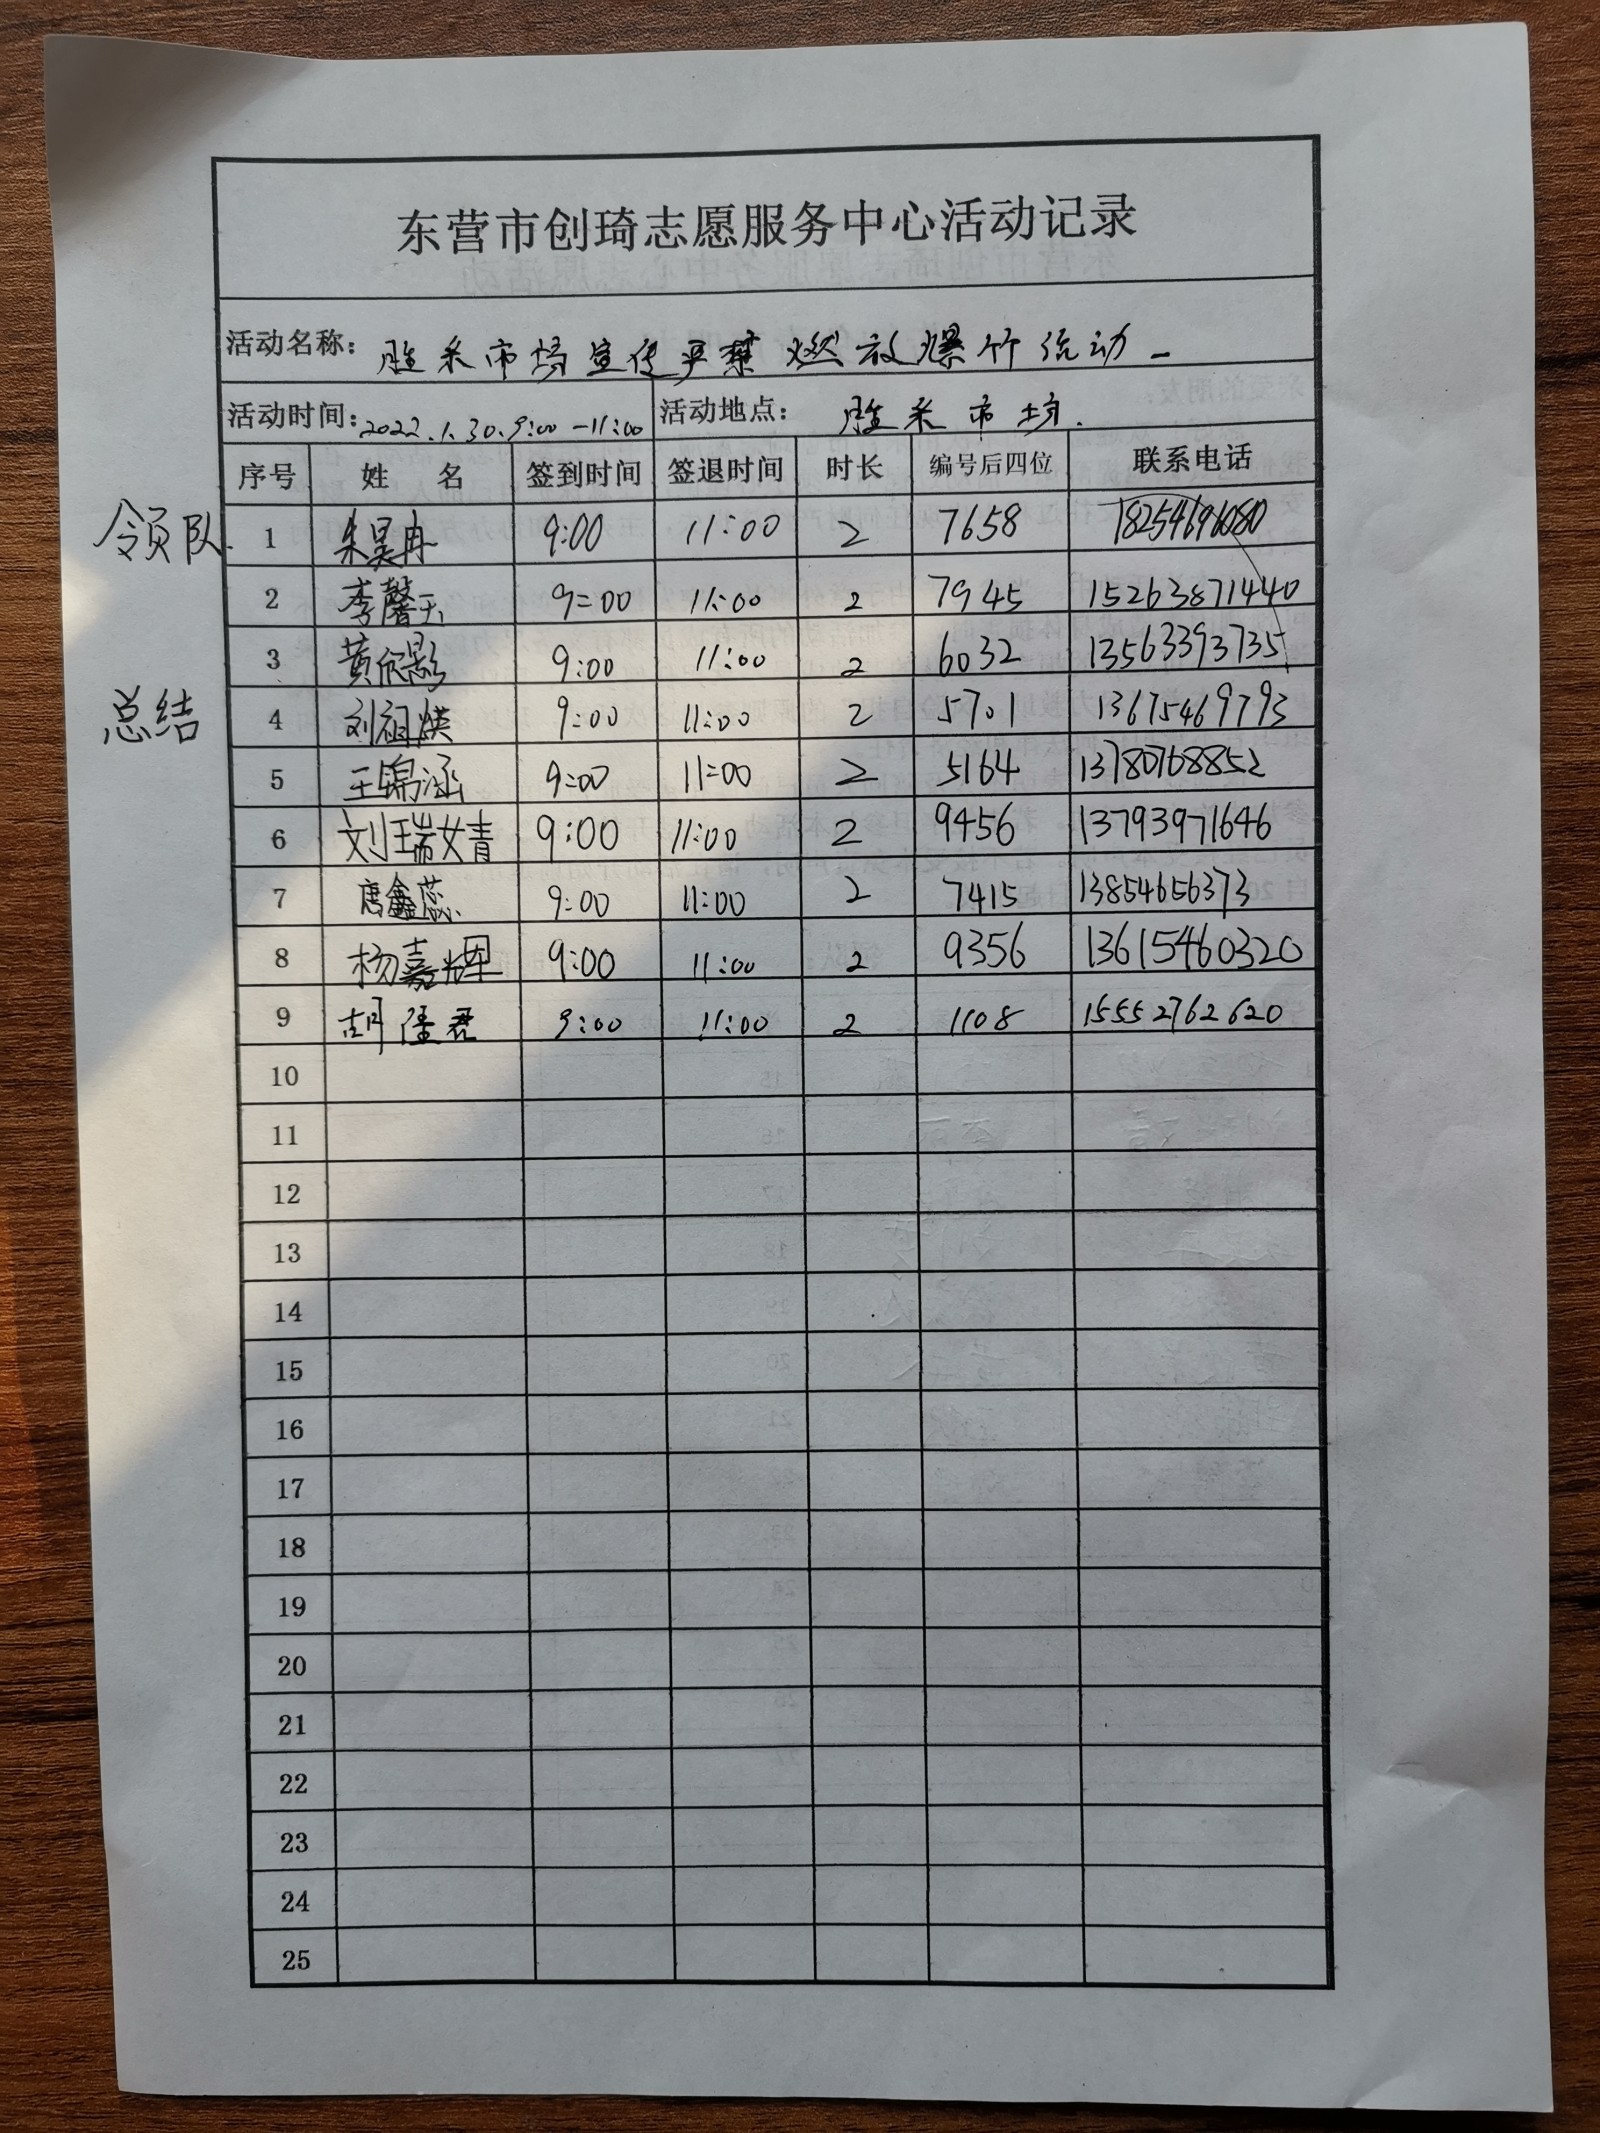 东营市创琦志愿服务中心活动记录
活动名称: 胜采市场宣传严禁燃放爆竹活动
活动时间: 2022.1.30.9:00-11:00 活动地点: 胜采市场.
序号 姓 名 签到时间 签退时间 时长 编号后四位 联系电话
领队. 1 朱昊冉 9:00 11:00 2 7658 18254696080
2 李馨玉 9:00 11:00 2 7945 15263871440
3 黄欣影 9:00 11:00 2 6032 13563393735
总结 4 刘祖 9:00 11:00 2 5701 13675469793
5 王锦涵 9:00 11:00 2 5164 13780768852
6 刘瑞婧 9:00 11:00 2 9456 13793971646
7 唐鑫蕊 9:00 11:00 2 7415 13854656373
8 杨嘉辉 9:00 11:00 2 9356 13615460320
9 胡 君 9:00 11:00 2 1108 15552762620
10
11
12
13
14
15
16
17
18
19
20
21
22
23
24
25